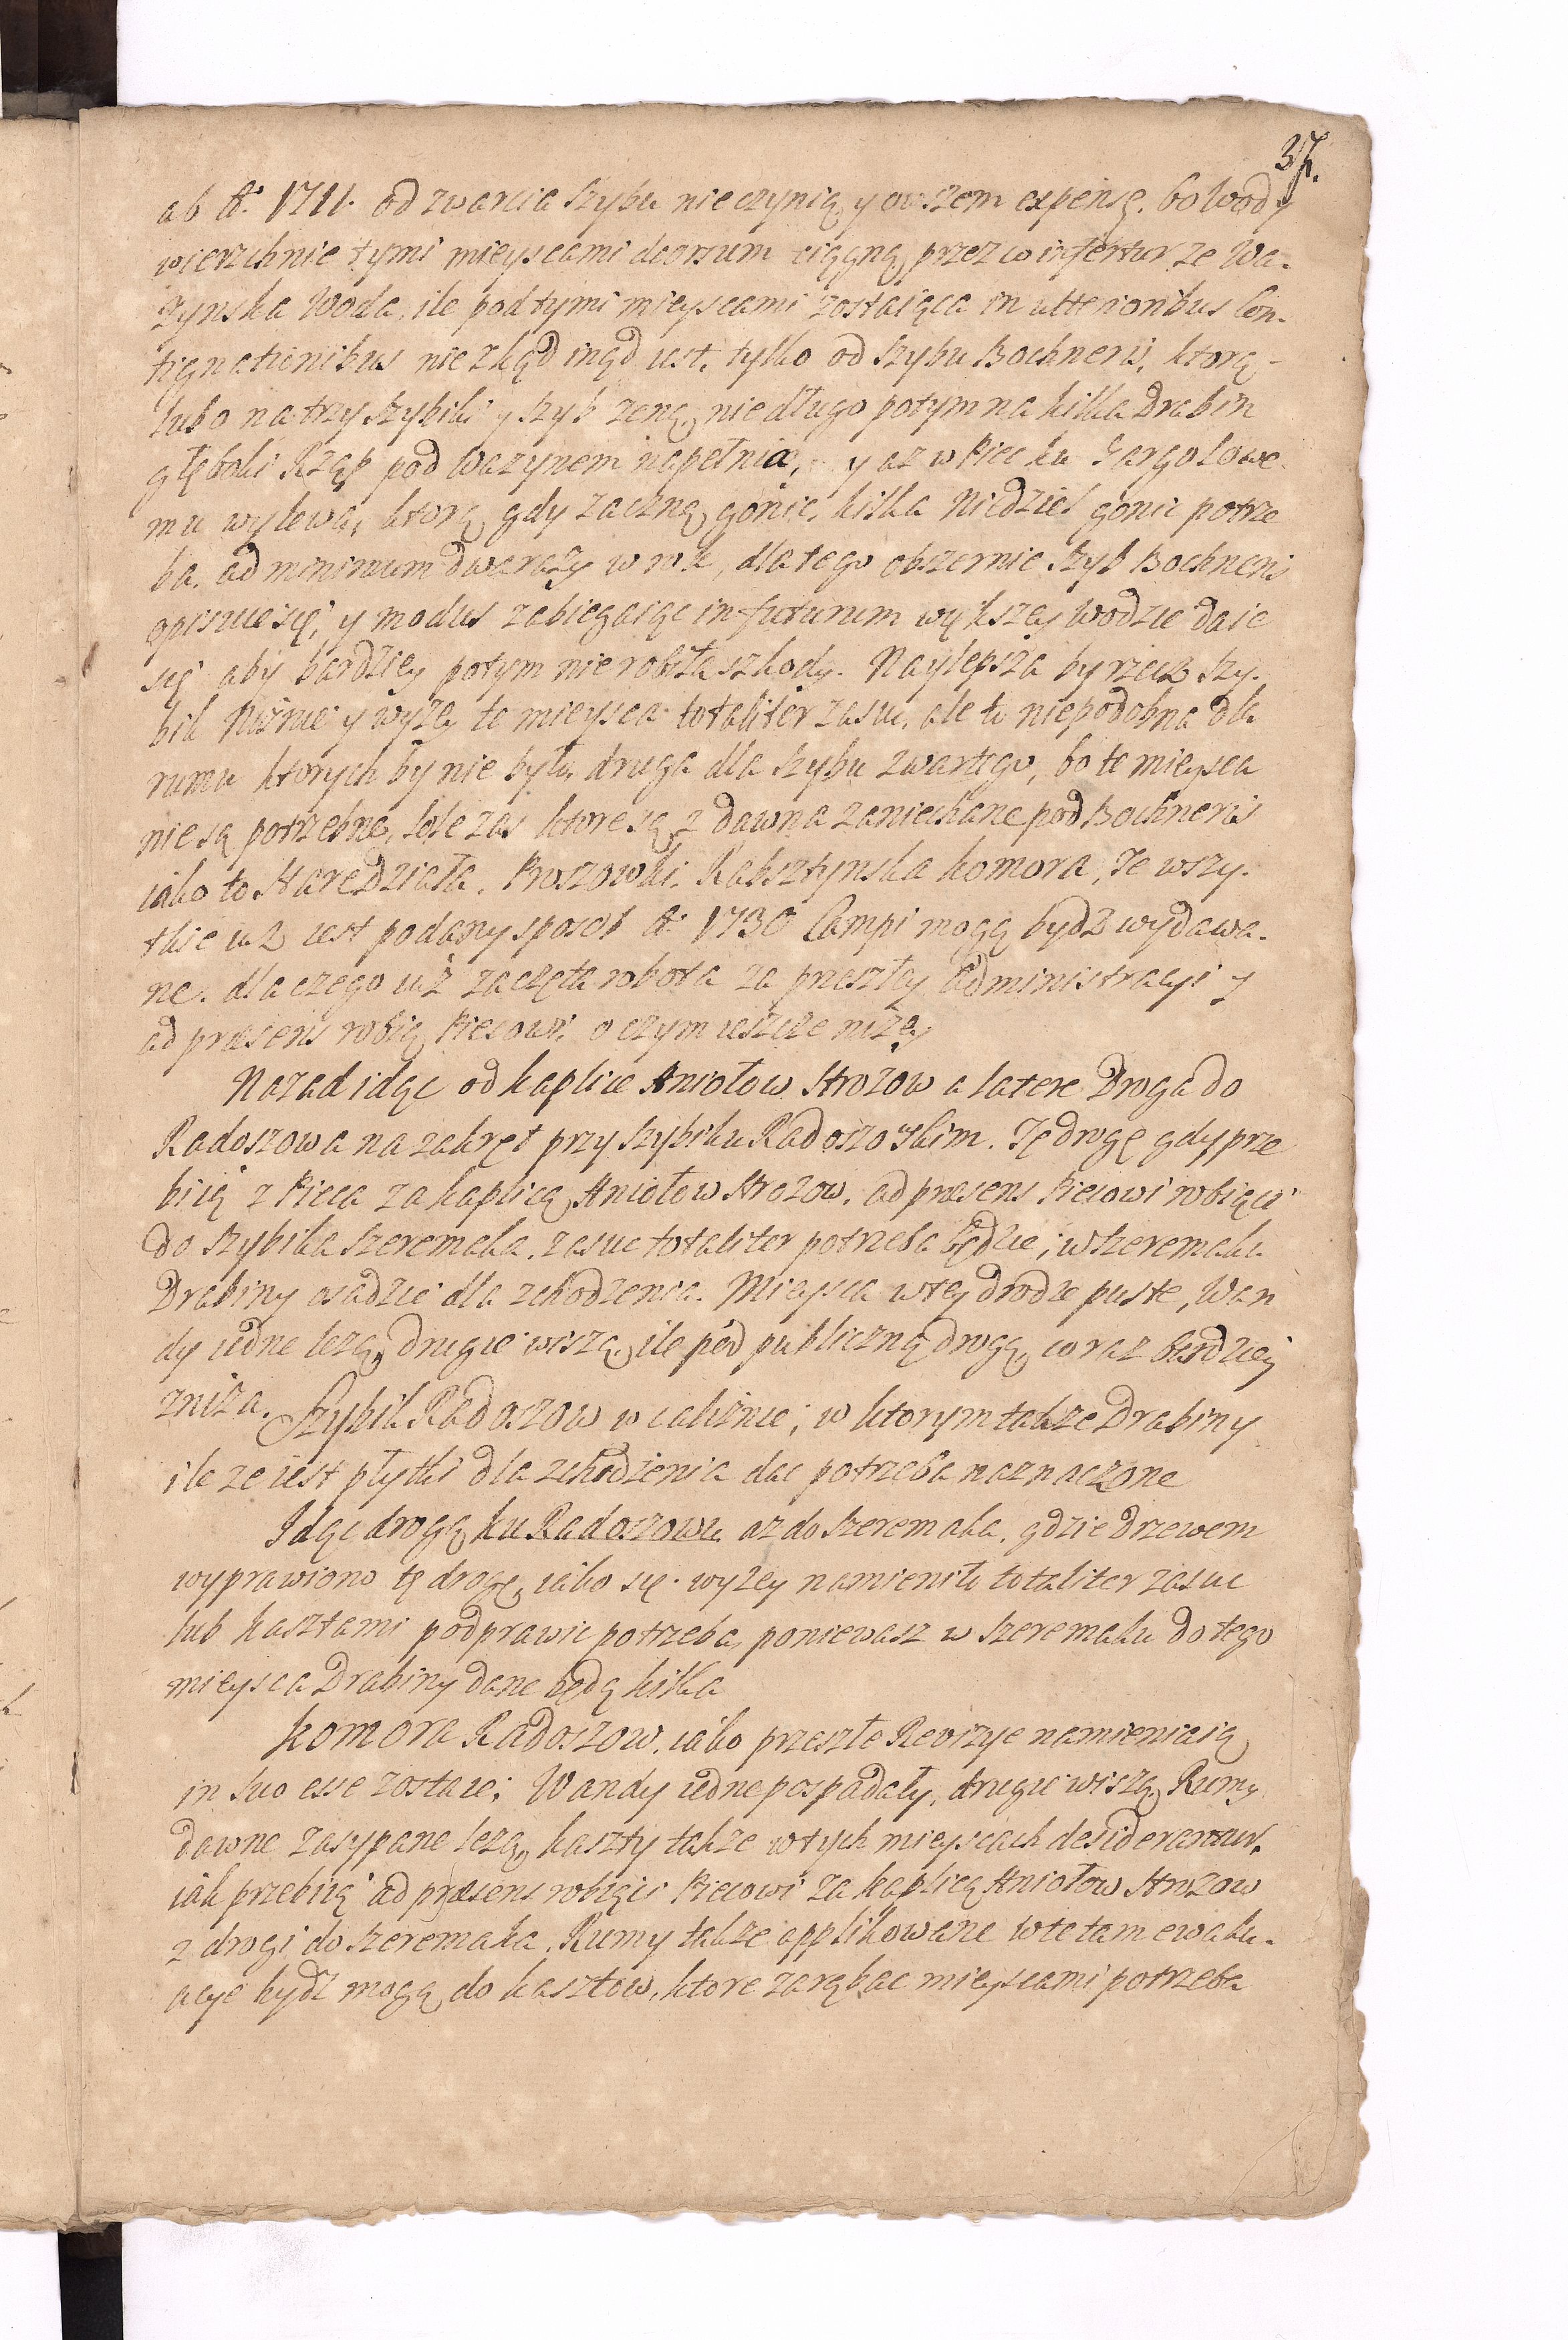 37.
ab A: 1711. od zwarcia szybu nie czynią y owszem expensę. bo Wody
wierzchnie tymi mieyscami deorsum ciągną, przez co infertur ze Wa-
żynska Woda, ile pod tymi mieyscami zostaiąca in ulterioribus Con-
tignationibus nie zkąd inąd iest, tylko od szybu Bochneris, ktorą
lubo na trzy szybiki y szyb żeną, nie długo potym na kilka Drabin
głęboki Rząp pod Wazynem napełnia, y az w Piecku Gargolowe-
mu wylewa, ktorą gdy zaczną gonic, kilka Niedziel gonic potrze
ba, ad minimum dwa razy w rok, dla tego obszernie szyb Bochneris
opisuie się, y modus zabiegaiąc in futurum większey wodzie daie
się aby bardziey potym nie robiła szkody. Naylepsza by rzecz szy-
bik Niżnie y wyzey te mieysca totaliter zasuć, ale to niepodobna dla
rumu ktorych by nie było, druga dla szybu zwartego, bo te mieysca
nie są potrzebne, Sole zas ktore są z dawna zaniechane pod Bochneris
iako to Stare Działa, Proszowki, Rabsztynska komora, Te wszy-
tkie iuż iest podany sposob A: 1730 Campi mogą bydź wydawa-
ne. dla czego iuż zaczęta robota za przeszłey administracyi y
ad præsens robią Piecowi, o czym ieszcze niżey
Nazad idąc od kaplice Aniołow Strozow a latere Droga do
Radoszowa na zakręt przy szybiku Radoszowskim. Tę drogę gdy prze
biią z Pieca za kaplicą Aniołow Strozow, ad præsens Piecowi robiący
do szybika szeremaka, zasuc totaliter potrzeba będzie; w szeremaku
Drabiny osadzić dla zchodzenia. Mieysca w tey drodze puste, Wan
dy iedne lezą, drugie wiszą, ile pod publiczną drogą, coraz bardziey
zniża. Szybik Radoszow w caliźnie; w ktorym takze Drabiny
ile ze iest płytki dla zchodzenia dac potrzeba naznaczone
Idąc drogą ku Radoszowu az do szeremaka, gdzie Drzewem
wyprawiono tę drogę, iako się wyzey namieniło totaliter zasuc
lub kasztami podprawic potrzeba, poniewasz w szeremaku do tego
mieysca Drabiny dane będą kilka
Komora Radoszow, iako przeszłe Rewizye namieniaią
in suo esse zostaie; Wandy iedne pospadały, drugie wiszą, Rumy
dawne zasypane lezą, kaszty takze w tych mieyscach desiderantur.
iak przebiią ad præsens robiący Piecowi za kaplicą Aniołow Strozow
z drogi do szeremaka, Rumy takze applikowane w te tam ewaku-
acye bydź mogą do kasztow, ktore zarębac mieyscami potrzeba